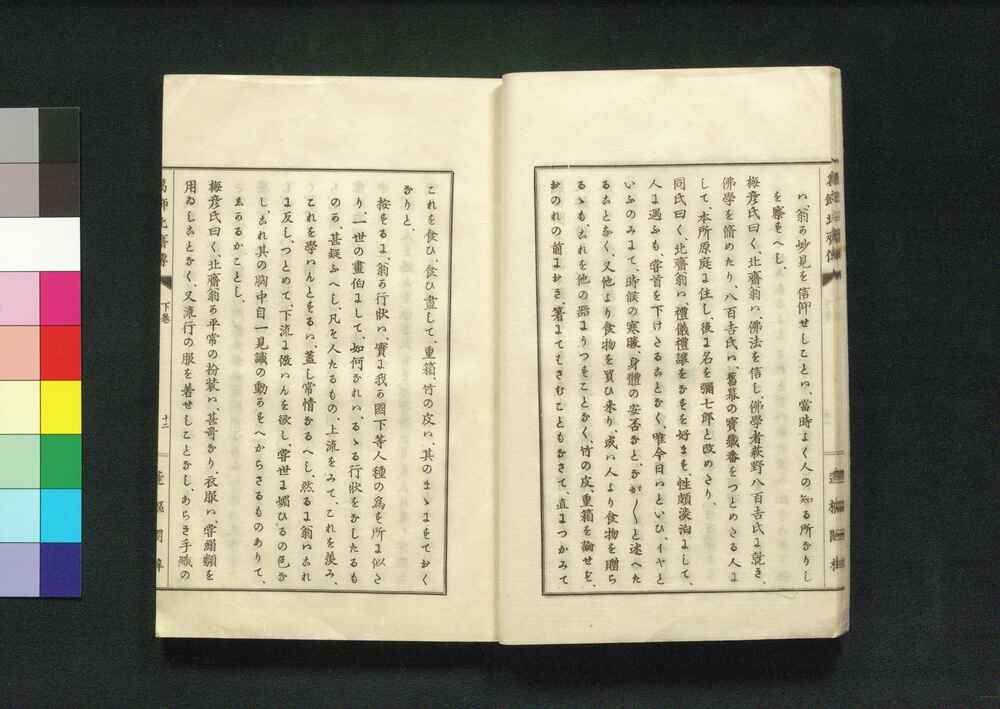 ハ、翁が妙見を信仰せしことハ、當時よく人の知る所なりし
を察すべし。
梅彦氏曰く、北齋翁ハ、佛法を信し、佛學者萩野八百吉氏に就き、
佛學を脩めたり、八百吉氏ハ、舊幕の寶藏番をつとめたる人に
して、本所原庭に住し、後に名を彌七郎と改めたり、
同氏曰く、北齋翁ハ、禮儀禮讓をなすを好まず、性頗淡泊にして、
人に遇ふも、甞首を下けたることなく、唯今日ハといひ、イヤと
いふのみにて、時候の寒暖、身體の安否など、なが〱と述べた
ることなく、又他より食物を買ひ來り、或ハ人より食物を贈ら
るゝも、これを他の器にうつすことなく、竹の皮、重箱を論せず、
おのれの前におき、箸にてはさむこともなさで、直につかみて
これを食ひ、食ひ盡して、重箱、竹の皮ハ、其のまゝにすておく
なりと、
按ずるに、翁の行状ハ、實に我が國下等人種の爲す所に似た
り、一世の畫伯にして、如何なれハ、かゝる行状をなしたるも
のか、甚疑ふべし、凡そ人たるもの、上流をみて、これを羨み、
これを學ハんとするハ、蓋し常情なるべし、然るに翁ハこれ
に反し、つとめて、下流に倣ハんを欲し、甞世に媚びるの色な
し、これ其の胸中自一見識の動かすべからさるものありて、
しかるがことし。
梅彦氏曰く、北齋翁が平常の扮裝ハ、甚奇なり、衣服ハ、甞絹類を
用ゐしことなく、又流行の服を着せしことなし、あらき手織の
葛飾北齋傳
下卷
十二